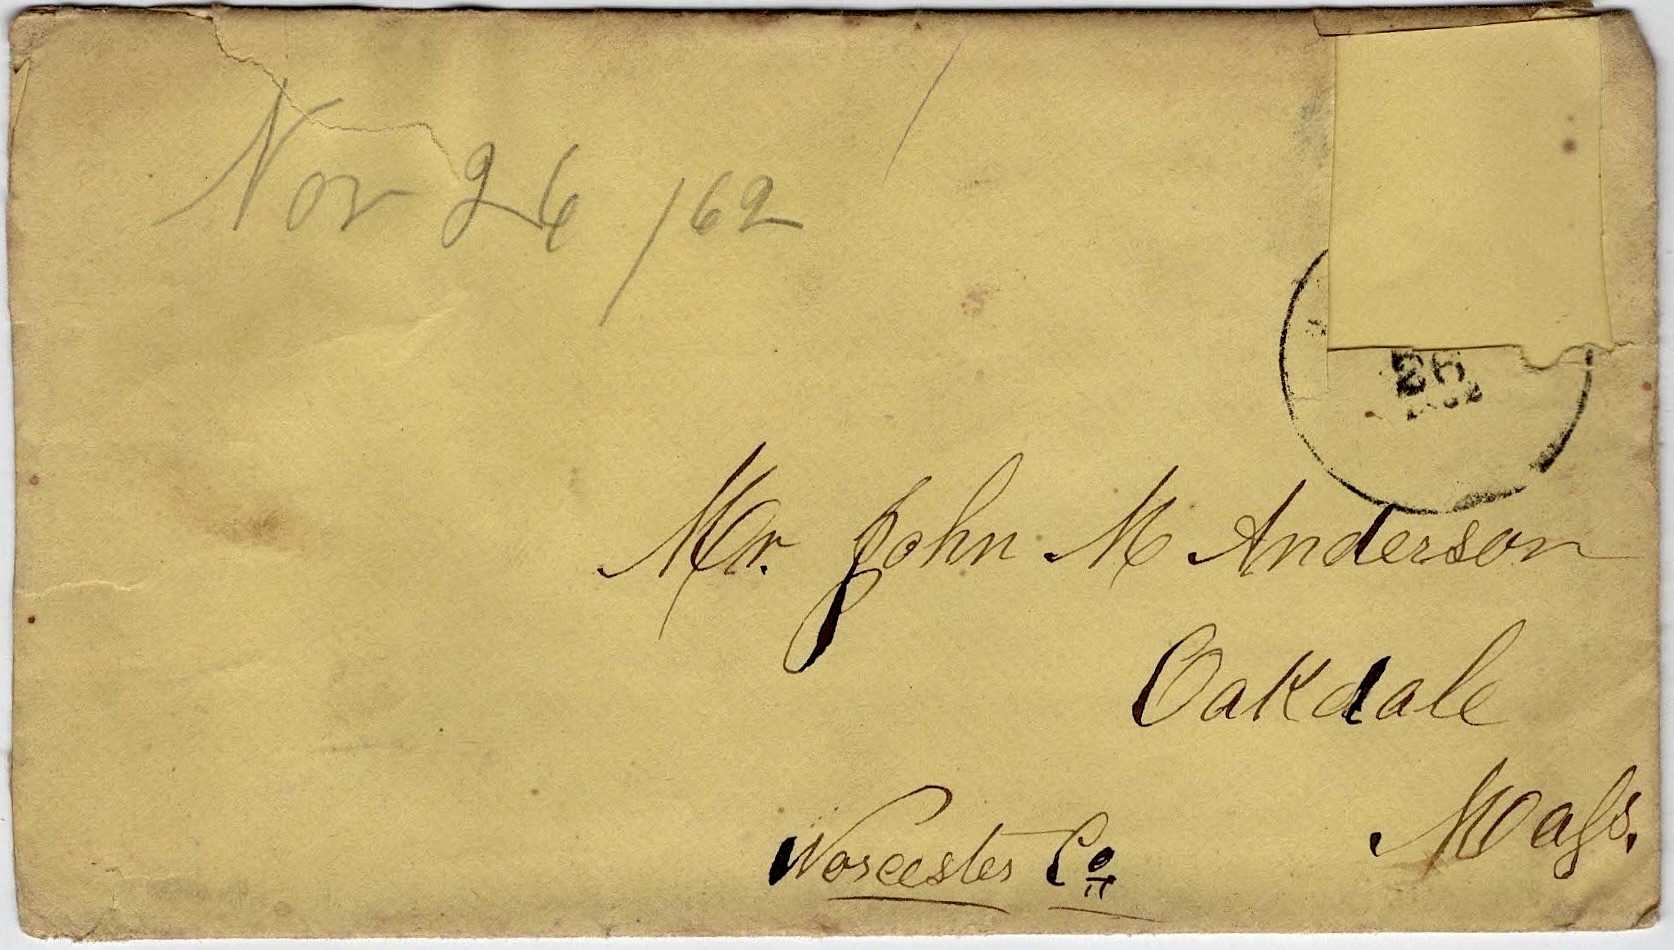 Nov 26 / 62
26
1862
Mr. John M Anderson
Oakdale
Mass.
Worcester Co